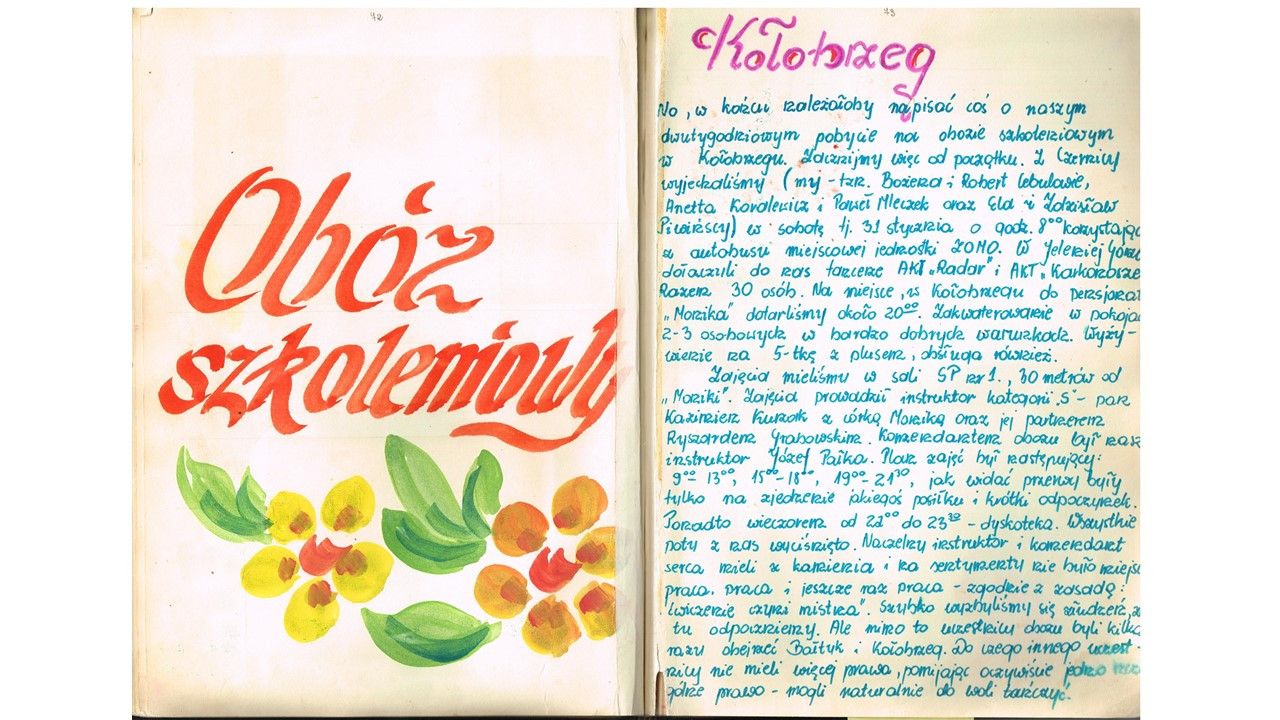 72
Obóz
szkoleniowy
73
Kołobrzeg
No, w końcu należałoby napisać coś o naszym
dwutygodniowym pobycie na obozie szkoleniowym
w Kołobrzegu. Zacznijmy więc od początku. Z Czernicy
wyjechaliśmy (my - tzn. Bożena i Robert Cebulowie,
Anetta Kovalewicz i Paweł Mleczek oraz Ela i Zdzisław
Piwińscy) w sobotę tj. 31 stycznia o godz. 8⁰⁰ korzystając
z autobusu miejscowej jednostki ZOMO. W Jeleniej Górze
dołączyli do nas tancerze AKT „Radar" i AKT „Karkonosze
Razem 30 osób. Na miejsce, w Kołobrzegu do pensjonat
„Monika" dotarliśmy około 20⁰⁰. Zakwaterowanie w pokojac
2-3 osobowych w bardzo dobrych warunkach. Wyży-
wienie na 5-tkę z plusem, obsługa również.
Zajęcia mieliśmy w sali SP nr 1., 30 metrów od
„Moniki". Zajęcia prowadził instruktor kategorii „S" - pan
Kazimierz z córką Moniką oraz jej partnerem
Ryszardem Grabowskim. Komendantem obozu był nasz
instruktor Józef Pałka. Plan zajęć był następujący:
9⁰⁰- 13⁰⁰, 15⁰⁰-18⁰⁰, 19⁰⁰- 21³⁰, jak widać przerwy były
tylko na zjedzenie jakiegoś posiłku i krótki odpoczynek.
Ponadto wieczorem od 22⁰⁰ do 23³⁰ - dyskoteka. Wszystkie
poty z nas wyciśnięto. Naczelny instruktor i komendant
serca mieli z kamienia i na sentymenty nie było miejsc
praca, praca i jeszcze raz praca - zgodnie z zasadą:
"ćwiczenie czyni mistrza". Szybko wyzbyliśmy się złudzeń, że
tu odpoczniemy. Ale mimo to uczestnicy obozu byli kilka
razy obejrzeć Bałtyk i Kołobrzeg. Do czego innego uczest-
nicy nie mieli więcej prawa, pomijając oczywiście jedno
górze prawo - mogli naturalnie do woli tańczyć.